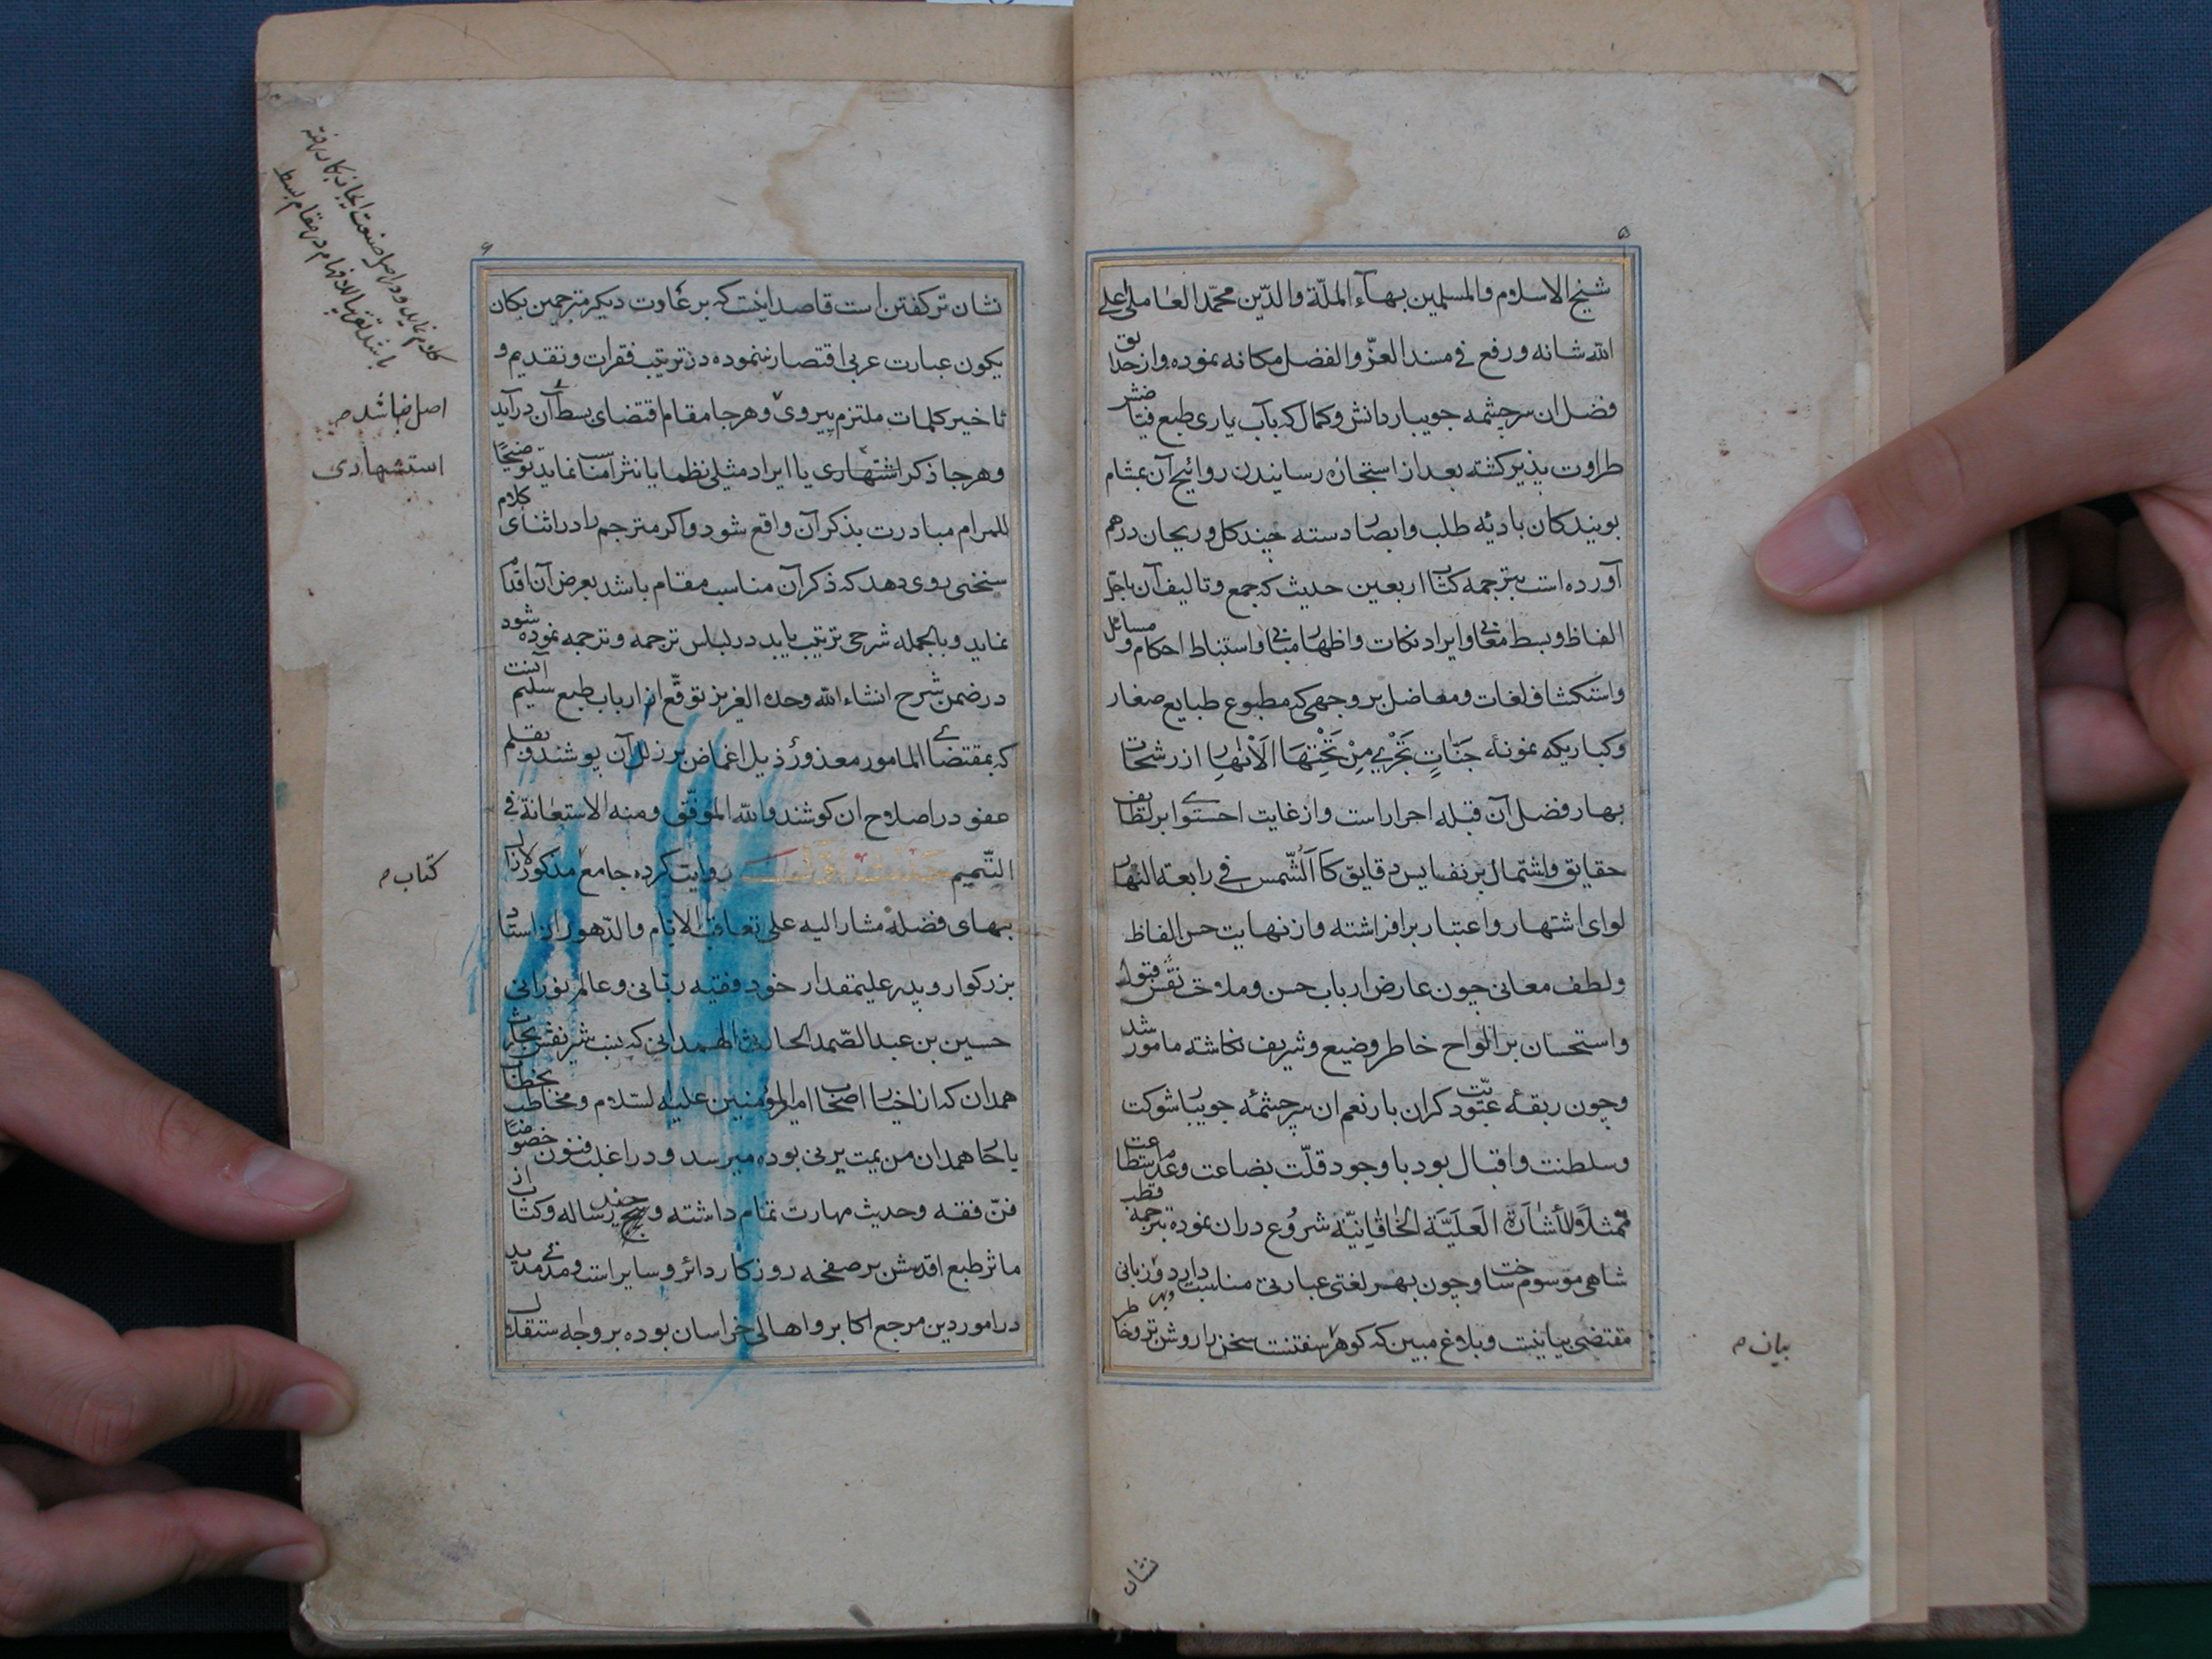 ۵
شیخ الاسلام والمسلمین بهآء الملّة والدّین محمّد العاملی اعلی
الله شانه ورفع فی مسند العزّ والفضل مکانه نموده واز حدایق
فضل ان سرچشمه جویبار دانش وکمال که بآب یاری طبع فیتاضش
طراوت پذیر کشته بعد از استجازه رسانیدن روایح آن بمشام
بویندکان بادیهٔ طلب وابصار دسته چند کل وریحان درهم
آورده است بترجمه کتاب اربعین حدیث که جمع وتالیف آن باجل
الفاظ وبسط معانی وایراد نکات واظهار مبانی واستنباط احکام ومسائل
واستکشاف لغات ومعاضل بر وجهی که مطبوع طبایع صغار
وکبار یکه نمونهٔ جَنّاتٍ تَجْرِی مِنْ تَحْتِهَا الْاَنْهَارِ از رشحات
بهار فضل آن قبله احرار است واز غایت احتوای بر لطایف
حقایق واشتمال بر نفایس دقایق کَالشّمس فی رابعة النّهار
لوای اشتهار واعتبار برافراشته واز نهایت حسن الفاظ
ولطف معانی چون عارض ارباب حسن وملاحت نقش قبول
واستحسان بر الواح خاطر وضیع وشریف نکاشته مامور شد
وچون ربقهٔ عبودیّت کران بار نعم ان سرچشمهٔ جویبار شوکت
وسلطنت واقبال بود با وجود قلّت بضاعت وعدم استطاعت
مُمْتَثِلاً لِلأشارَةِ العَلِیَّةِ الخاقانِیّة شروع دران نموده بترجمه قطب
شاهی موسوم ساخت وچون بهر لغتی عبارتی مناسبت دارد وهر زبانی
مقتضی بیانیست وبلاغ مبین که کوهر سفتنست سخن را روشن تر وخاطر
بیان م
نشان
۶
نشان تر کفتن است قاصد اینست که بر عادت دیکر مترجمین بکان
یکون عبارت عربی اقتصار ننموده در ترتیب فقرات وتقدیم و
تاخیر کلمات ملتزم پیروی وهر جا مقام اقتضای بسط آن درآید
وهر جا ذکر اشتهاری یا ایراد مثلی نظما یا نثرا مناسب نماید توضیحًا
للمرام مبادرت بذکر آن واقع شود واکر مترجم را در اثنای کلام
سخنی روی دهد که ذکر آن مناسب مقام باشد بعرض آن اقدام
نماید وبالجمله شرحی ترتیب یابد در لباس ترجمه وترجمه نموده شود
در ضمن شرح انشاء الله وحده العزیز توقّع از ارباب طبع سلیم آنست
که بمقتضای المامور معذورٌ ذیل اغماض بر زلل آن پوشند وبقلم
عفو در اصلاح ان کوشند والله الموفّق ومنه الاستعانة فی
التّتمیم حدیث اوّل روایت کرده جامع مذکور لازال
بهای فضله مشار الیه علی تعاقب الایّام والدّهور از استاد
بزرکوار وپدر عالیمقدار خود فقیه ربّانی وعالم نورانی
حسین بن عبد الصّمد الحارثی الهمدانی که نسب شریفش بحارث
همدان که از اخیار اصحاب امیر المؤمنین علیه السّلام ومخاطب بخطاب
یا حار همدان من یمت یرنی بوده میرسد ودر اغلب فنون خصوصًا
فنّ فقه وحدیث مهارت تمام داشته وچند رساله وکتاب از
ماثر طبع اقدسش بر صفحه روزکار دائر وسایر است ومدّتی مدید
در امور دین مرجع اکابر واهالی خراسان بوده بر وجه استقلال
کلام نماید ودر هر جا صنعت ایجاز بکار رفته
باشد تقریبا للافهام در مقام بسط
اصل باشد م
استشهادی
کتاب م